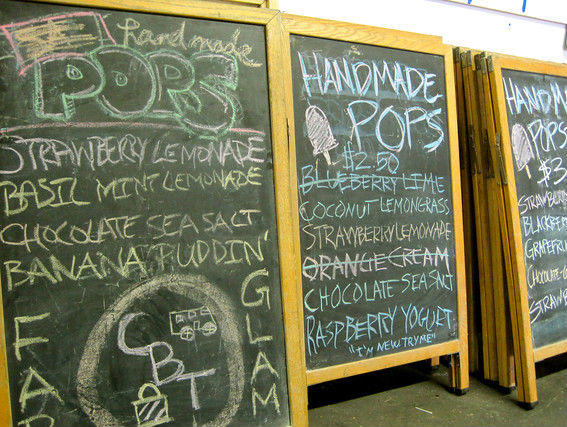 handmade
POPS
STRAWBERRY LEMONADE
BASIL MINT LEMONADE
CHOCOLATE SEA SALT
BANANA PUDDIN'
FAB
GLAM
CBT
HANDMADE
POPS
$2.50
BLUEBERRY LIME
COCONUT LEMONGRASS
STRAWBERRY LEMONADE
ORANGE CREAM
CHOCOLATE SEA SALT
RASPBERRY YOGURT
"I'M NEW TRY ME"
HANDM
POPS
$3
STRAWBERR
BLACKBERR
GRAPEFRU
CHOCOLATE
STRAWB